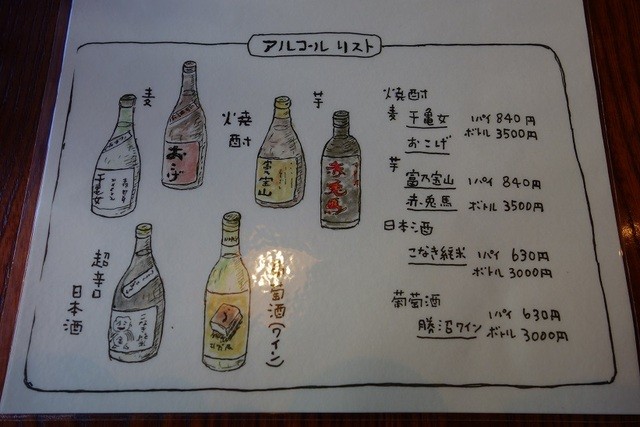 アルコール リスト
麦
焼酎
芋
おこげ
千亀女
富乃宝山
赤兎馬
超辛口
日本酒
こなき純米
葡萄酒(ワイン)
焼酎
麦 千亀女 1パイ 840円
ボトル 3500円
おこげ
芋
富乃宝山 1パイ 840円
赤兎馬 ボトル 3500円
日本酒
こなき純米 1パイ 630円
ボトル 3000円
葡萄酒 1パイ 630円
勝沼ワイン ボトル 3000円